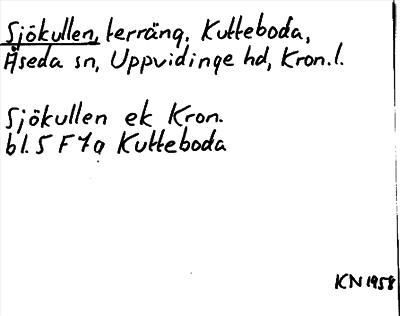 Sjökullen, terräng, Kutteboda,
Åseda sn, Uppvidinge hd, Kron. l.
Sjökullen ek Kron.
bl. 5 F 7a Kutteboda
KN 1958